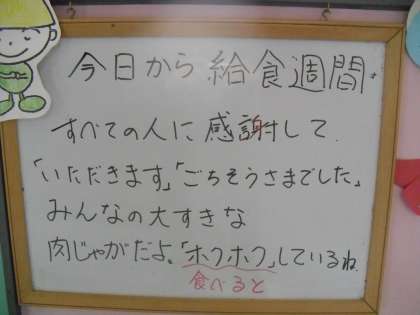 今日から給食週間。
すべての人に感謝して
「いただきます」「ごちそうさまでした。」
みんなの大すきな
肉じゃがだよ。「ホクホク」しているね。
食べると